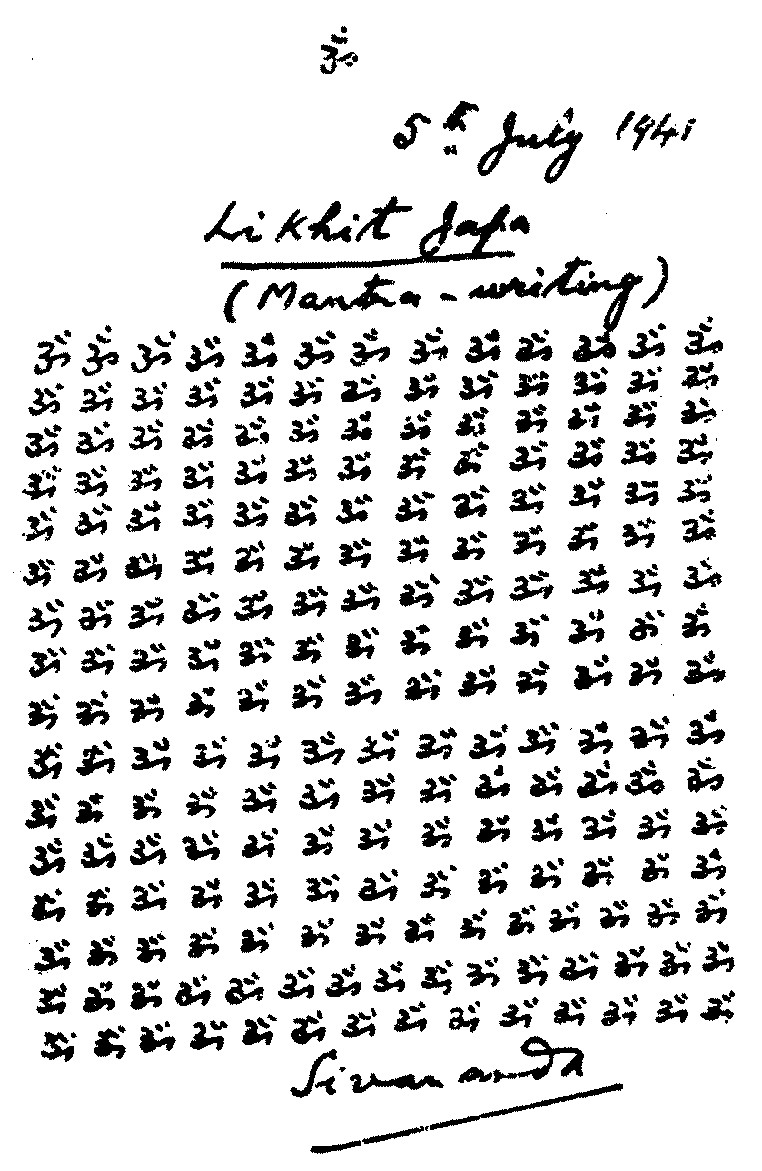 ॐ
5th July 1941
Likhit Japa
(Mantra - writing)
ॐ ॐ ॐ ॐ ॐ ॐ ॐ ॐ ॐ ॐ ॐ ॐ ॐ
ॐ ॐ ॐ ॐ ॐ ॐ ॐ ॐ ॐ ॐ ॐ ॐ ॐ
ॐ ॐ ॐ ॐ ॐ ॐ ॐ ॐ ॐ ॐ ॐ ॐ ॐ
ॐ ॐ ॐ ॐ ॐ ॐ ॐ ॐ ॐ ॐ ॐ ॐ ॐ
ॐ ॐ ॐ ॐ ॐ ॐ ॐ ॐ ॐ ॐ ॐ ॐ ॐ
ॐ ॐ ॐ ॐ ॐ ॐ ॐ ॐ ॐ ॐ ॐ ॐ ॐ
ॐ ॐ ॐ ॐ ॐ ॐ ॐ ॐ ॐ ॐ ॐ ॐ ॐ
ॐ ॐ ॐ ॐ ॐ ॐ ॐ ॐ ॐ ॐ ॐ ॐ ॐ
ॐ ॐ ॐ ॐ ॐ ॐ ॐ ॐ ॐ ॐ ॐ ॐ ॐ
ॐ ॐ ॐ ॐ ॐ ॐ ॐ ॐ ॐ ॐ ॐ ॐ ॐ
ॐ ॐ ॐ ॐ ॐ ॐ ॐ ॐ ॐ ॐ ॐ ॐ ॐ
ॐ ॐ ॐ ॐ ॐ ॐ ॐ ॐ ॐ ॐ ॐ ॐ ॐ
ॐ ॐ ॐ ॐ ॐ ॐ ॐ ॐ ॐ ॐ ॐ ॐ ॐ
ॐ ॐ ॐ ॐ ॐ ॐ ॐ ॐ ॐ ॐ ॐ ॐ ॐ ॐ
ॐ ॐ ॐ ॐ ॐ ॐ ॐ ॐ ॐ ॐ ॐ ॐ ॐ ॐ ॐ
ॐ ॐ ॐ ॐ ॐ ॐ ॐ ॐ ॐ ॐ ॐ ॐ ॐ ॐ
Sivananda